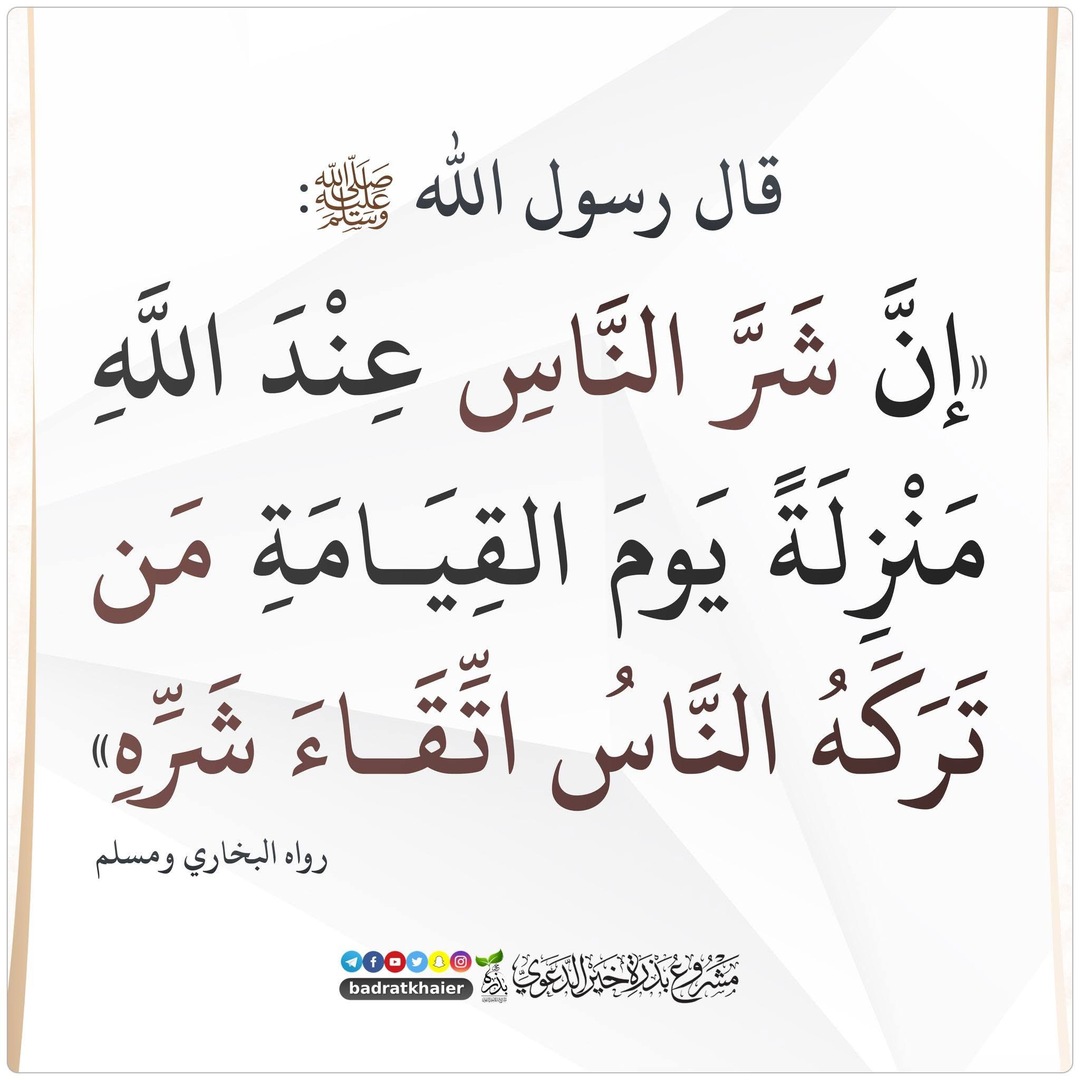 قال رسول الله ﷺ:
«إِنَّ شَرَّ النَّاسِ عِنْدَ اللَّهِ
مَنْزِلَةً يَومَ القِيَامَةِ مَن
تَرَكَهُ النَّاسُ اتِّقَاءَ شَرِّهِ»
رواه البخاري ومسلم
مَشْرُوعُ بَذْرَةِ خَيْرٍ الدَّعَوِيّ
بذرة
badratkhaier